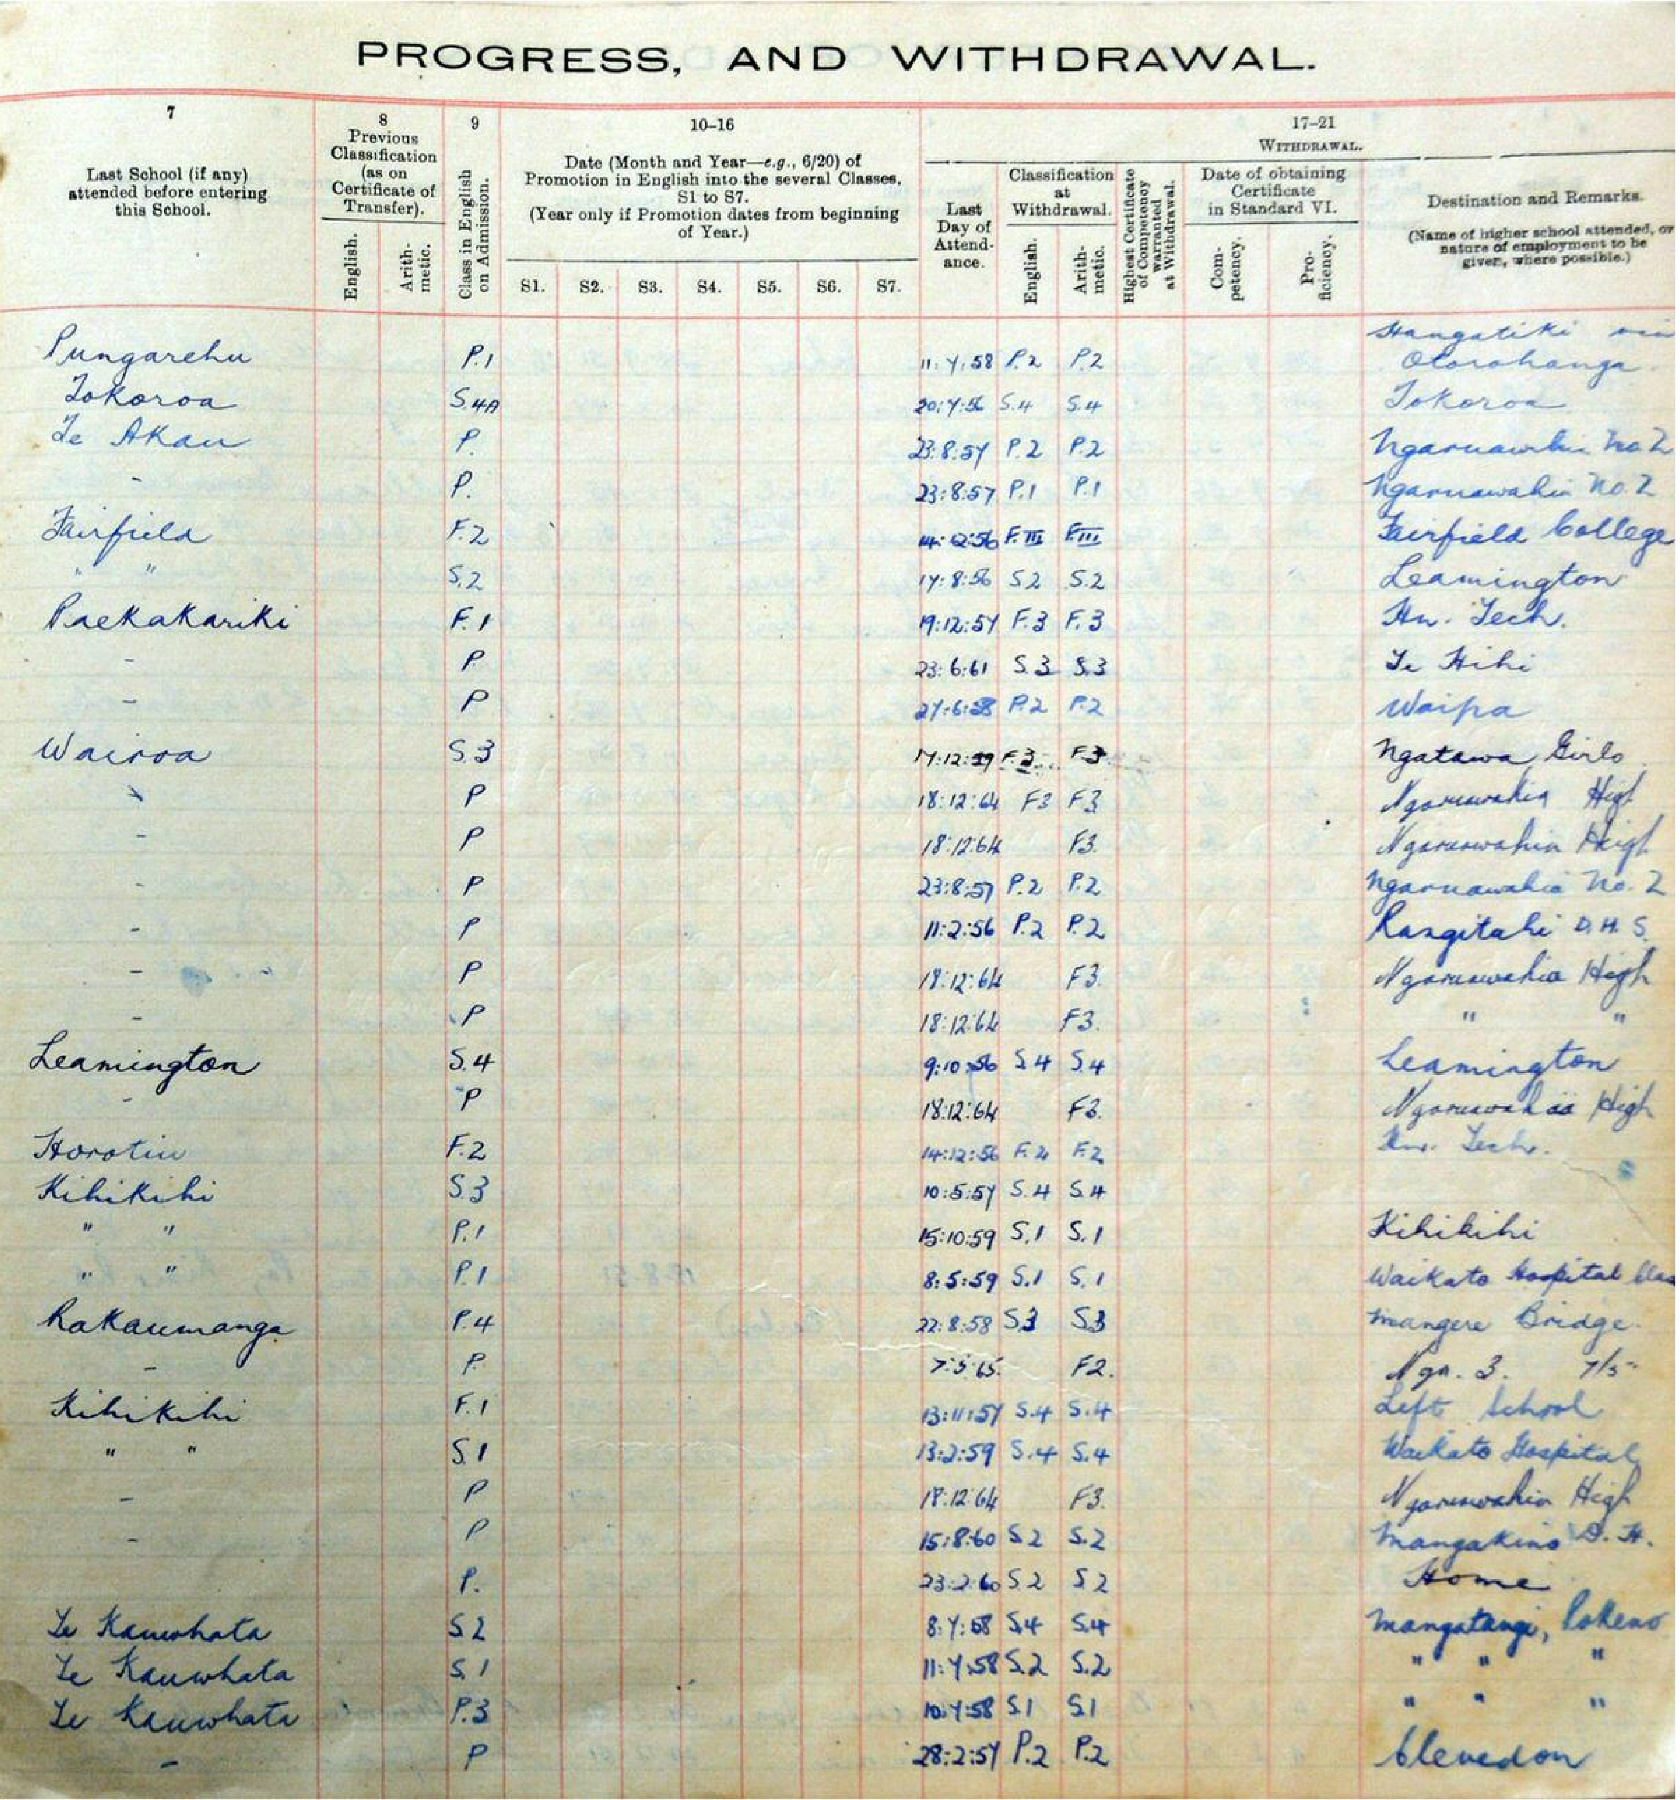 PROGRESS, AND WITHDRAWAL.
7 8 9 10–16 17–21
Last School (if any) attended before entering this School.
Previous Classification (as on Certificate of Transfer).
English. Arithmetic.
Class in English on Admission.
Date (Month and Year—e.g., 6/20) of Promotion in English into the several Classes, S1 to S7.
(Year only if Promotion dates from beginning of Year.)
S1. S2. S3. S4. S5. S6. S7.
WITHDRAWAL.
Last Day of Attendance.
Classification at Withdrawal.
English. Arithmetic.
Highest Certificate of Competency warranted at Withdrawal.
Date of obtaining Certificate in Standard VI.
Competency. Proficiency.
Destination and Remarks.
(Name of higher school attended, or nature of employment to be given, where possible.)
Hangatiki via
Pungarehu P.1 11:7:58 P.2 P.2 Otorohanga.
Tokoroa S.4A 20:7:56 S.4 S.4 Tokoroa
Te Akau P. 23:8:57 P.2 P.2 Ngaruawahia No. 2
- P. 23:8:57 P.1 P.1 Ngaruawahia No. 2
Fairfield F.2 F.III F.III Fairfield College
" " S.2 17:8:56 S2 S.2 Leamington
Paekakariki F.1 19:12:57 F.3 F.3 Hn. Tech.
- P 23:6:61 S.3 S.3 Te Hihi
- P 27:6:58 P.2 P.2 Waipa
Wairoa S.3 17:12:59 F.3 F.3 Ngatawa Girls
P 18:12:64 F3 F3 Ngaruawahia High
- P 18:12:64 F3. Ngaruawahia High
- P 23:8:57 P.2 P.2 Ngaruawahia No. 2
- P 11:2:56 P.2 P.2 Rangitahi D.H.S.
- P 18:12:64 F3. Ngaruawahia High
- P 18:12:64 F3. " "
Leamington S.4 9:10:56 S.4 S.4 Leamington
- P 18:12:64 F3. Ngaruawahia High
Horotiu F.2 14:12:56 F.2 F.2 Hn. Tech.
Kihikihi S.3 10:5:57 S.4 S.4
" " P.1 15:10:59 S.1 S.1 Kihikihi
" " P.1 8:5:59 S.1 S.1 Waikato Hospital
Rakaumanga P.4 22:8:58 S3 S3 Mangere Bridge.
- P. 7:5:65. F2. Nga. 3. 7/5
Kihikihi F.1 13:11:57 S.4 S.4 Left School
" " S.1 13:2:59 S.4 S.4 Waikato Hospital
- P 18:12:64 F3. Ngaruawahia High
- P 15:8:60 S2 S.2 Mangakino D.H.
P. 23:2:60 S2 S2 Home
Te Kauwhata S2 8:7:58 S4 S.4 Mangatangi, Pokeno
Te Kauwhata S.1 11:7:58 S.2 S.2 " " "
Te Kauwhata P.3 10:7:58 S1 S1 " " "
- P 28:2:57 P.2 P.2 Clevedon